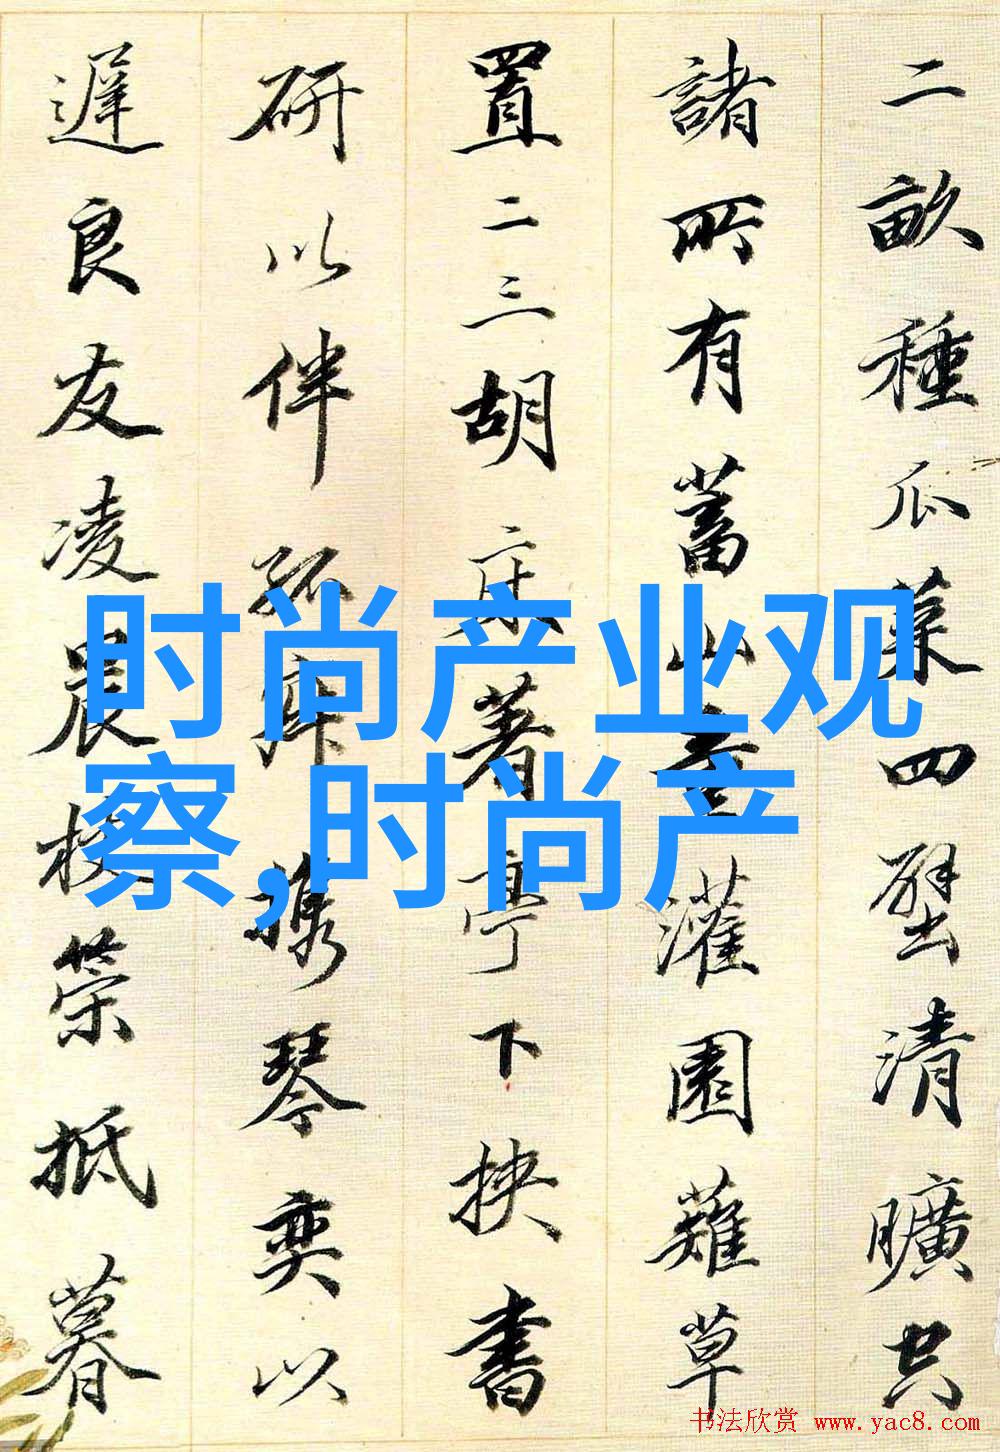 二畝種瓜菜四壁清曠空
諸所有蓄山童灌園薙草
置二三胡床著亭下挾書
研以伴孤寂攜琴奕以
遲良友凌晨杖策抵暮
时尚产业观
察,时尚产
书法欣赏 www.yac8.com